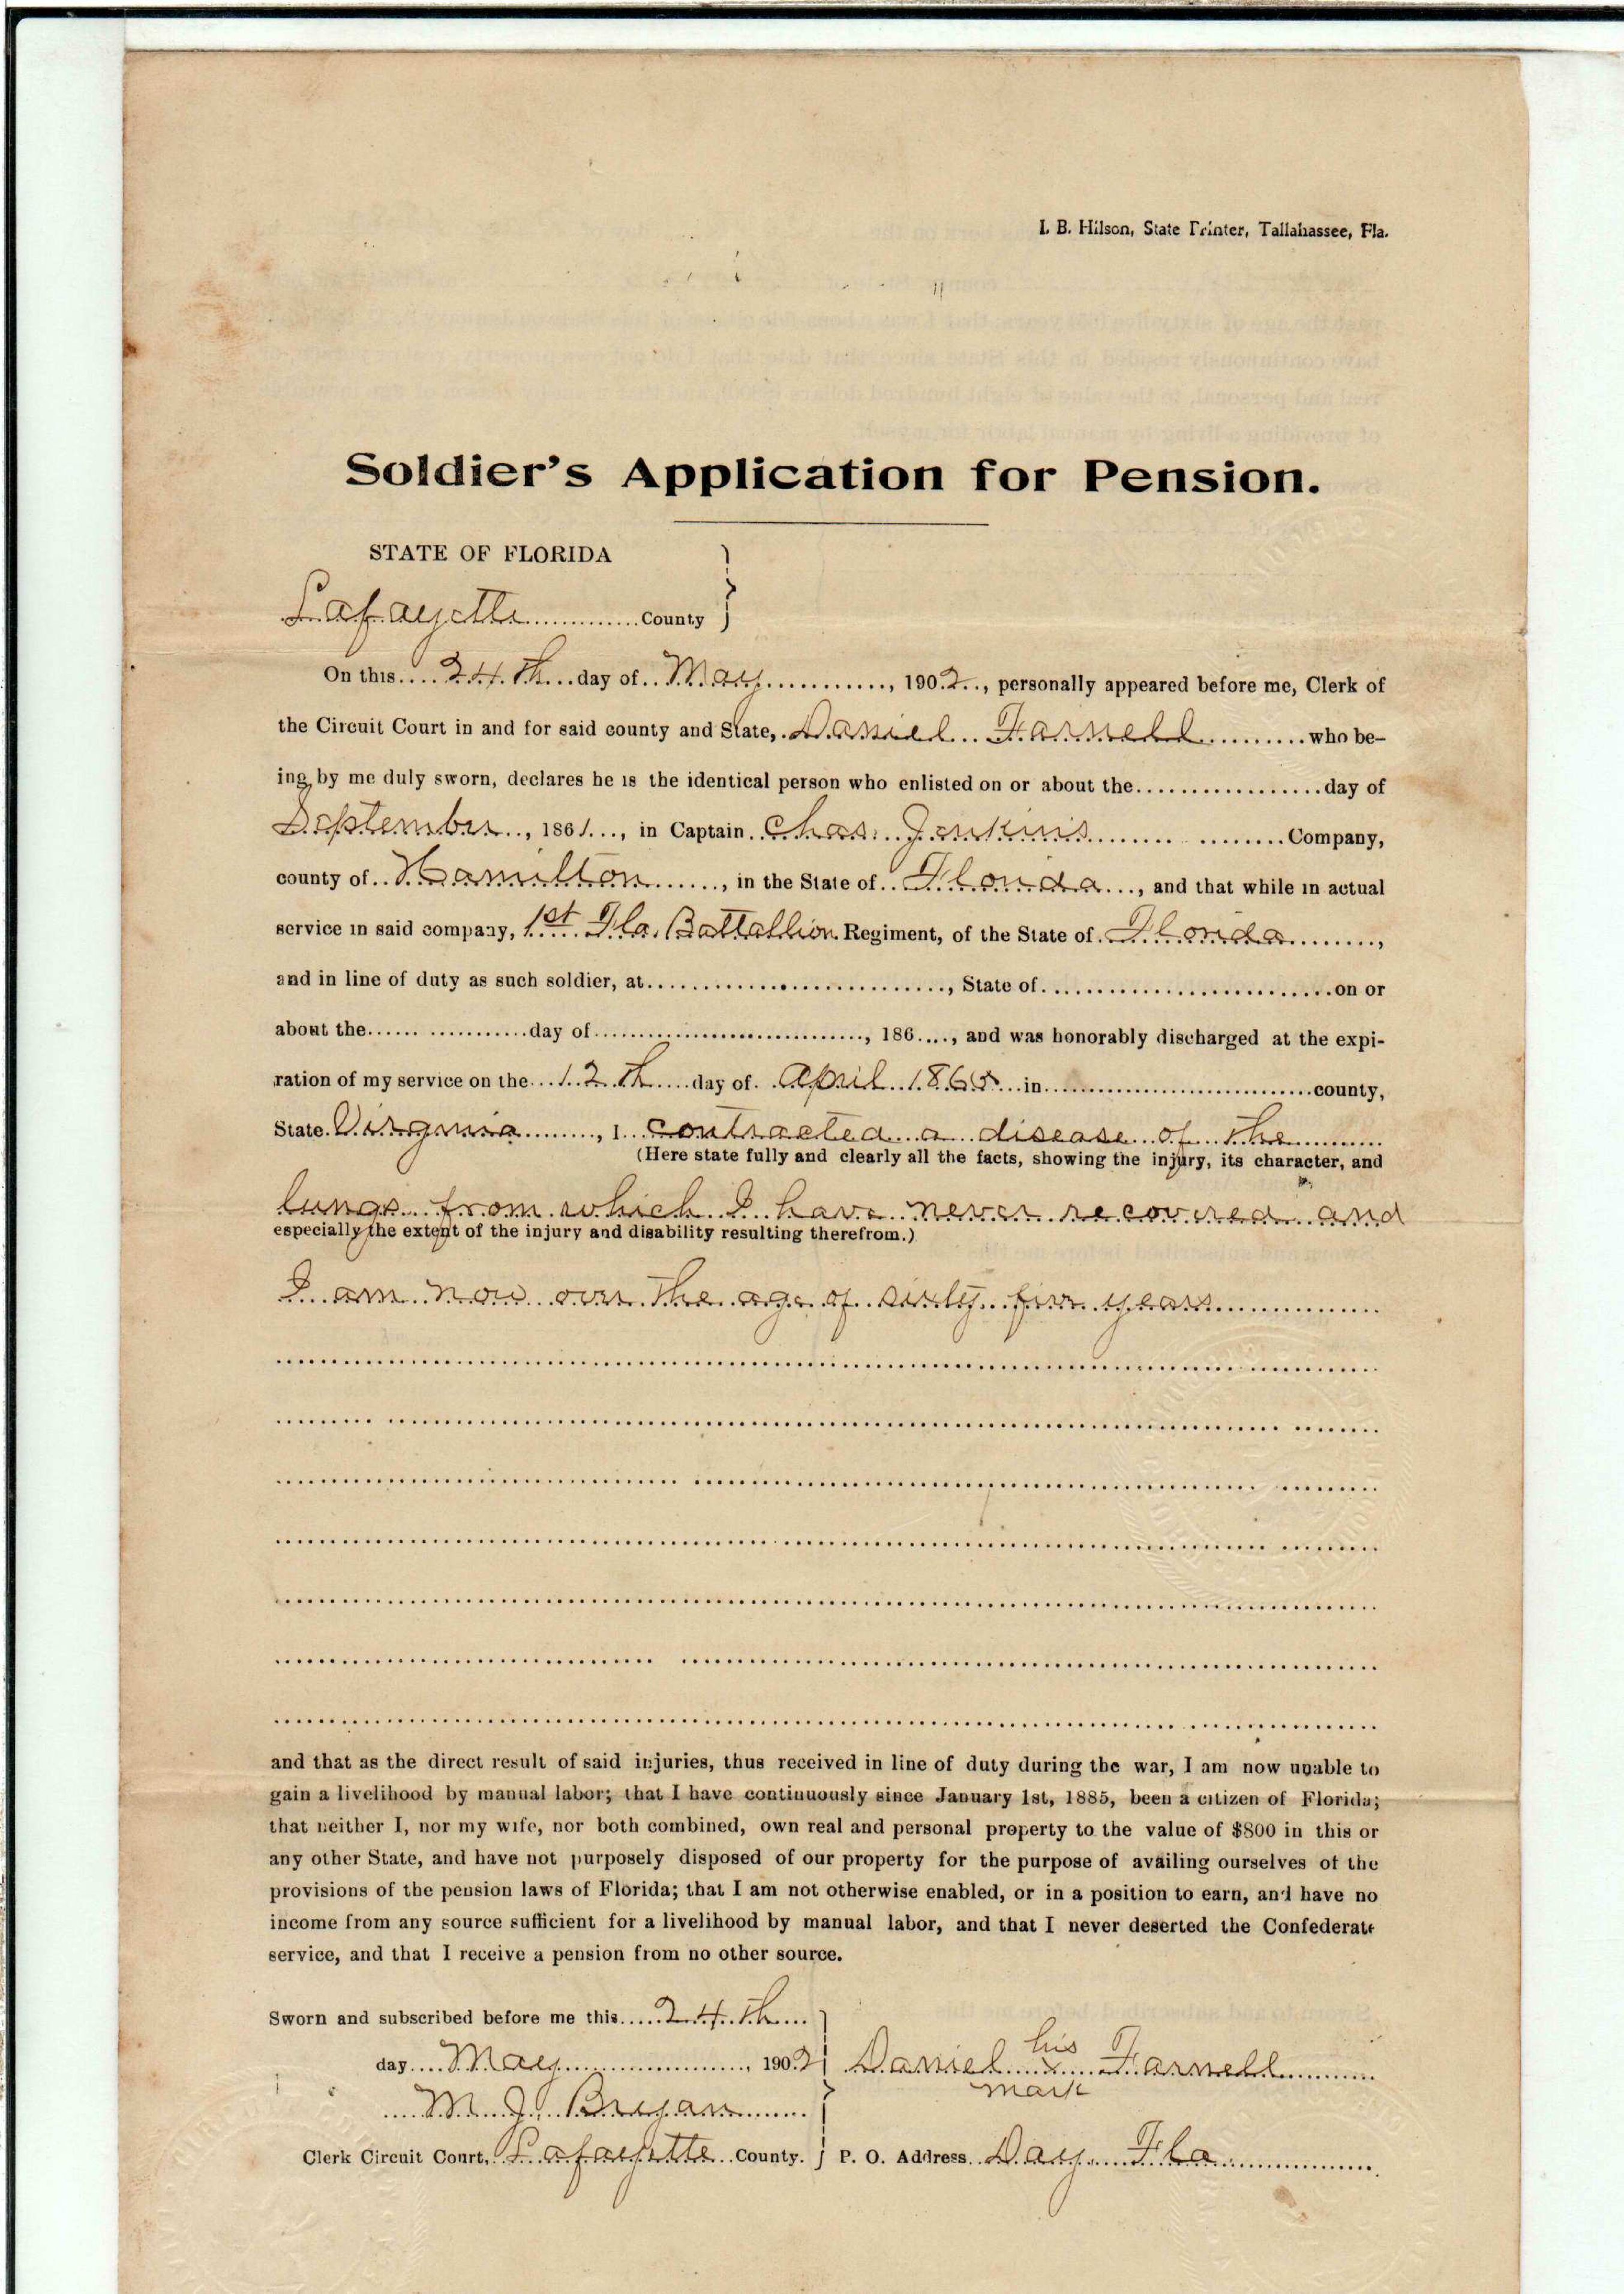 I. B. Hilson, State Printer, Tallahassee, Fla.
Soldier's Application for Pension.
STATE OF FLORIDA
Lafayette County
On this 24th day of May, 1902, personally appeared before me, Clerk of
the Circuit Court in and for said county and State, Daniel Farnell who be-
ing by me duly sworn, declares he is the identical person who enlisted on or about the day of
September, 1861, in Captain Chas. Jenkins Company,
county of Hamilton, in the State of Florida, and that while in actual
service in said company, 1st Fla. Battallion Regiment, of the State of Florida,
and in line of duty as such soldier, at, State of on or
about the day of, 186, and was honorably discharged at the expi-
ration of my service on the 12th day of April 1865 in county,
State Virginia, I contracted a disease of the
(Here state fully and clearly all the facts, showing the injury, its character, and
lungs from which I have never recovered and
especially the extent of the injury and disability resulting therefrom.)
I am now over the age of sixty five years
and that as the direct result of said injuries, thus received in line of duty during the war, I am now unable to
gain a livelihood by manual labor; that I have continuously since January 1st, 1885, been a citizen of Florida;
that neither I, nor my wife, nor both combined, own real and personal property to the value of $800 in this or
any other State, and have not purposely disposed of our property for the purpose of availing ourselves of the
provisions of the pension laws of Florida; that I am not otherwise enabled, or in a position to earn, and have no
income from any source sufficient for a livelihood by manual labor, and that I never deserted the Confederate
service, and that I receive a pension from no other source.
Sworn and subscribed before me this 24th
day May, 1902
his
Daniel x Farnell
mark
M. J. Bryan
Clerk Circuit Court, Lafayette County.
P. O. Address Day Fla